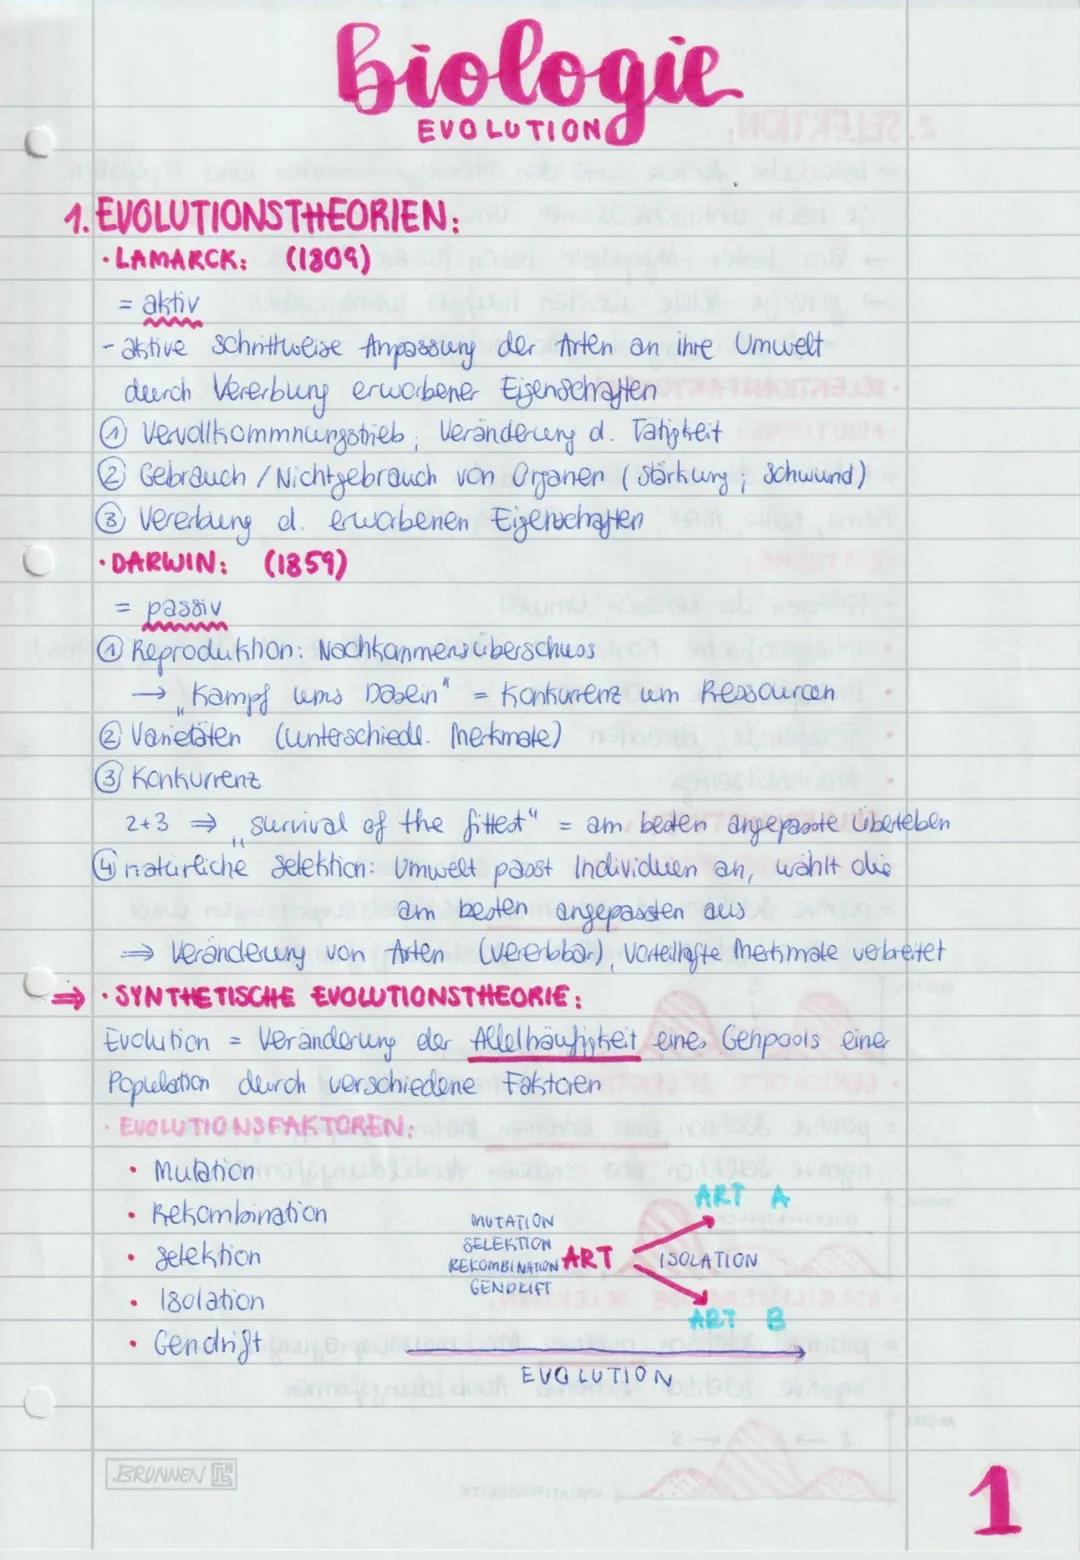 Biologie
EVOLUTION
1. EVOLUTIONSTHEORIEN:
· LAMARCK: (1809)
= aktiv
- aktive schrittweise Anpassung der Arten an ihre Umwelt
durch Vererbung erworbener Eigenschaften
① Vervollkommnungstrieb, Veränderung d. Tätigkeit
② Gebrauch / Nichtgebrauch von Organen (Stärkung; Schwund)
③ Vererbung d. erworbenen Eigenschaften
· DARWIN: (1859)
= passiv
① Reproduktion: Nachkommensüberschuss
→ „Kampf ums Dasein" = Konkurrenz um Ressourcen
② Varietäten (unterschiedl. Merkmale)
③ Konkurrenz
2+3 ⇒ „survival of the fittest" = am besten angepasste überleben
④ natürliche Selektion: Umwelt passt Individuen an, wählt die
am besten angepassten aus
⇒ Veränderung von Arten (vererbbar), vorteilhafte Merkmale verbreitet
⇒ · SYNTHETISCHE EVOLUTIONSTHEORIE:
Evolution = Veränderung der Allelhäufigkeit eines Genpools einer
Population durch verschiedene Faktoren
· EVOLUTIONSFAKTOREN:
• Mutation
• Rekombination
• Selektion
• Isolation
• Gendrift
MUTATION
SELEKTION
REKOMBINATION
GENDRIFT
ART
ART A
ISOLATION
ART B
EVOLUTION
BRUNNEN
1